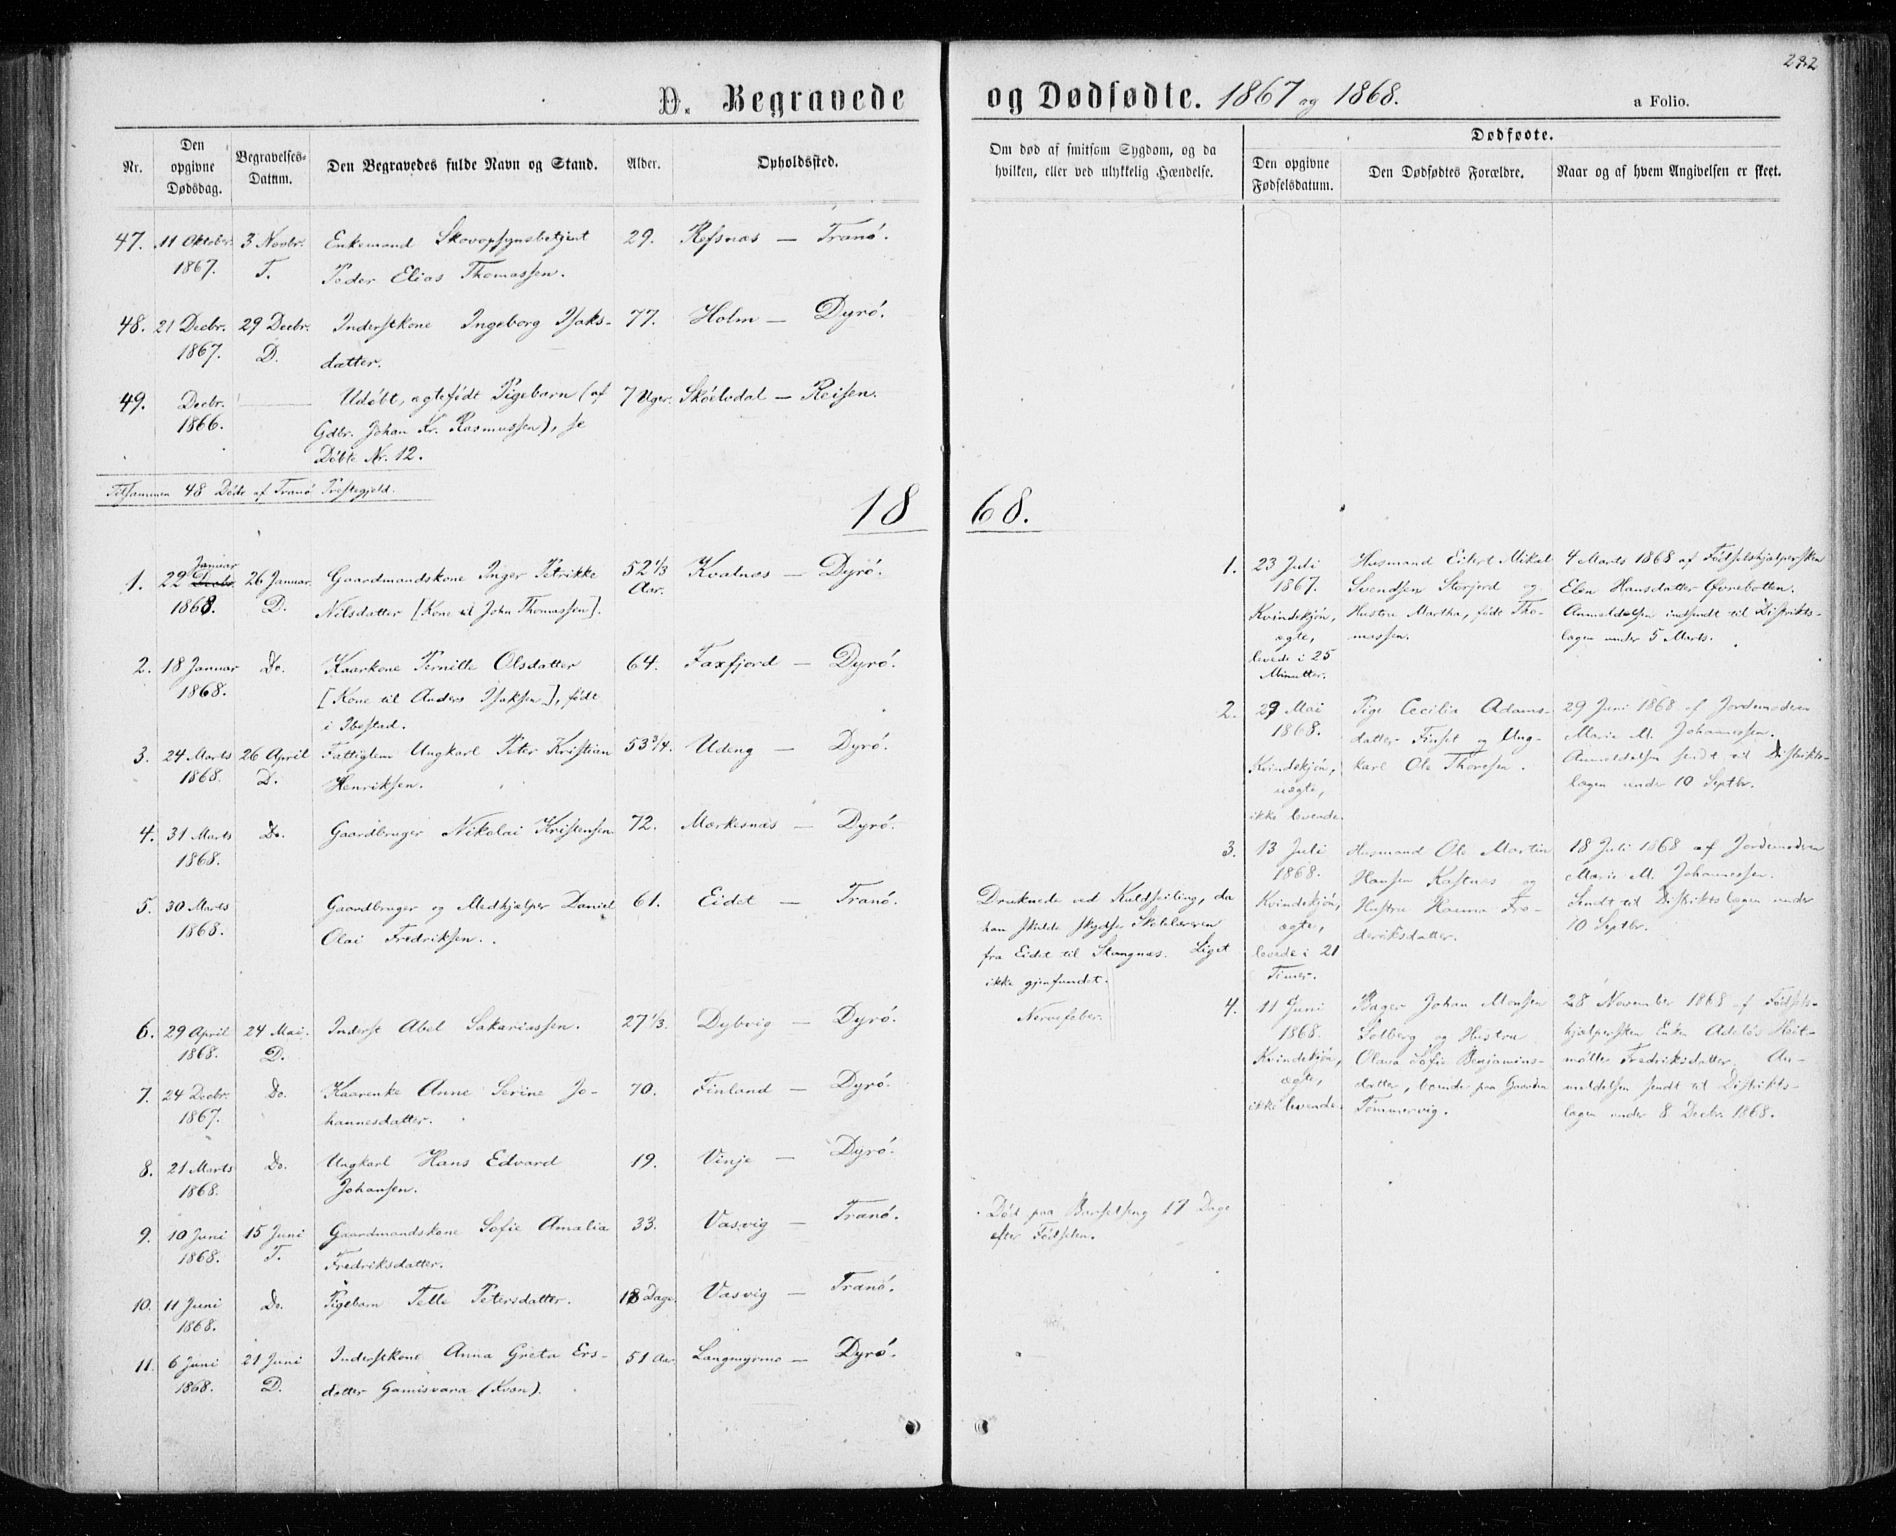 232
D. Begravede og Dødfødte. 1867 og 1868.
a Folio.
Nr.
Den opgivne Dødsdag.
Begravelses-Datum.
Den Begravedes fulde Navn og Stand.
Alder.
Opholdssted.
Om død af smitsom Sygdom, og da hvilken, eller ved ulykkelig Hændelse.
Dødfødte.
Den opgivne Fødselsdatum.
Den Dødfødtes Forældre.
Naar og af hvem Angivelsen er skeet.
47. 11 Oktober 3 Novbr. Enkemand Skovopsynsbetjent 29. Refsnæs — Tranö.
1867. T. Peder Elias Thomassen.
48. 21 Decbr. 29 Decbr. Inderstkone Ingeborg Isaks- 77. Holm — Dyrö.
1867. D. datter.
49. Decbr. — Udöbt, ægtefödt Pigebarn (af 7 Uger. Sköelvdal — Reisen.
1866. Gdbr. Johan Kr. Rasmussen), se
Döbte Nr. 12.
Tilsammen 48 Döde af Tranö Præstegjeld.
1868.
Januar
1. 22 Decbr. 26 Januar Gaardmandskone Inger Petrikke 52 1/3 Kvalnæs — Dyrö.
1868. D. Nilsdatter [Kone til John Thomassen]. Aar.
2. 18 Januar Do. Kaarkone Pernille Olsdatter 64. Faxfjord — Dyrö.
1868. [Kone til Anders Isaksen], födt
i Ibestad.
3. 24 Marts 26 April Fattiglem Ungkarl Peter Kristian 53 3/4. Udeng — Dyrö.
1868. D. Henriksen.
4. 31 Marts Do. Gaardbruger Nikolai Kristensen 72. Mærkesnæs — Dyrö.
1868.
5. 30 Marts Gaardbruger og Medhjælper Daniel 61. Eidet — Tranö.
1868. Olai Fredriksen.
Druknede ved Kuldseiling, da
han skulde skydse Skolelæreren
fra Eidet til Stangnæs. Liget
ikke gjenfundet.
6. 29 April 24 Mai. Inderst Abel Sakariassen. 27 1/3. Dybvig — Dyrö. Nervefeber.
1868. D.
7. 24 Decbr. Do. Kaarenke Anne Serine Jo- 70. Finland — Dyrö.
1867. hannesdatter.
8. 21 Marts Do. Ungkarl Hans Edvard 19. Vinje — Dyrö.
1868. Johansen.
9. 10 Juni 15 Juni Gaardmandskone Sofie Amalia 33. Vasvig — Tranö.
1868. T. Fredriksdatter.
Död paa Barselseng 17 Dage
efter Födselen.
10. 11 Juni Do. Pigebarn Telle Petersdatter. 18 Dage. Vasvig — Tranö.
1868.
11. 6 Juni 21 Juni Inderstkone Anna Greta Ers- 51 Aar. Langmyrmo — Dyrö.
1868. D. datter Gamisvara (Kvæn).
1. 23 Juli Husmand Eilert Mikal 4 Marts 1868 af Födselshjælpersken
1867. Svendsen Storjord og Elen Hansdatter Övrebotten.
Kvindekjön, Hustru Martha, födt Tho- Anmeldelsen indsendt til Distrikts-
ægte, massen. lægen under 5 Marts.
levede i 25
Minutter.
2. 29 Mai Pige Cecilia Adams- 29 Juni 1868 af Jordemoderen
1868. datter Finset og Ung- Marie M. Johannessen.
Kvindekjön, karl Ole Thoresen. Anmeldelsen sendt til Distrikts-
uægte, lægen under 10 Septbr.
ikke levende.
3. 13 Juli Husmand Ole Martin 18 Juli 1868 af Jordemoderen
1868. Hansen Kastnæs og Marie M. Johannessen.
Kvindekjön, Hustru Hanna Fre- Sendt til Distriktslægen under
ægte, deriksdatter. 10 Septbr.
levede i 21
Timer.
4. 11 Juni Bager Johan Monsen 28 November 1868 af Födsels-
1868. Solberg og Hustru hjælpersken Enke Adelös Heit-
Kvindekjön, Olava Sofie Benjamins- mötte Fredriksdatter. An-
ægte, datter, boende paa Gaarden meldelsen sendt til Distrikts-
ikke levende. Tömmervig. lægen under 8 Decbr. 1868.